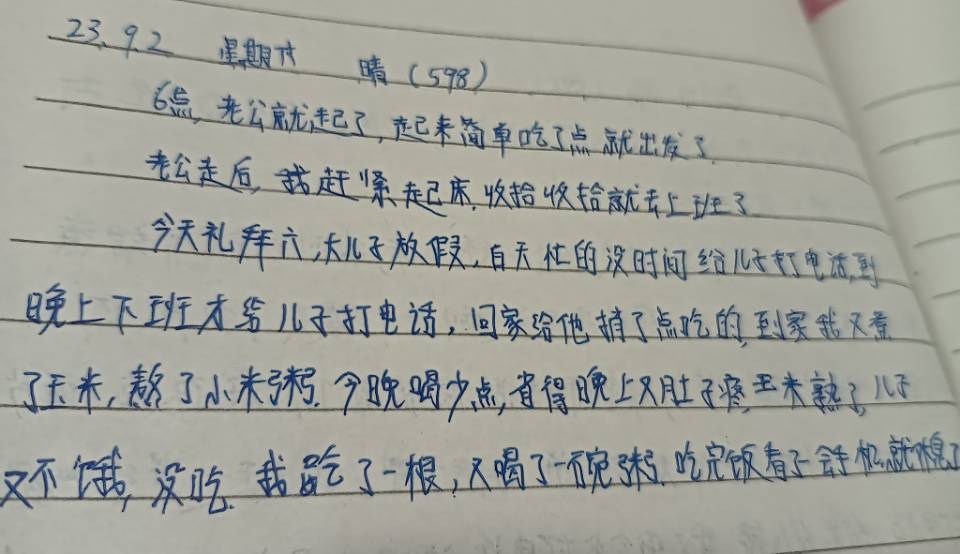 23.9.2 星期六 晴（598）
6点,老公就起了,起来简单吃了点就出发了.
老公走后,我赶紧起床,收拾收拾就去上班了.
今天礼拜六,大儿子放假,白天忙的没时间给儿子打电话,到
晚上下班才给儿子打电话,回家给他捎了点吃的,到家我又煮
了玉米,熬了小米粥.今晚喝少点,省得晚上又肚子疼,玉米熟了,儿子
又不饿,没吃.我吃了一根,又喝了一碗粥.吃完饭看了会手机就休息了